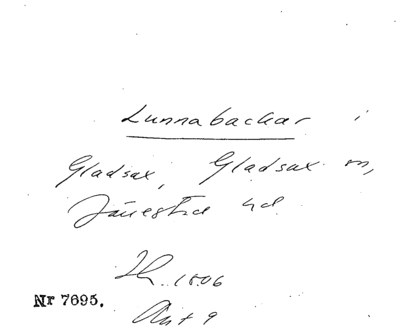 Lunnabackar i
Gladsax, Gladsax sn,
Järrestad hd.
1806
Nr 7695.
Akt 9